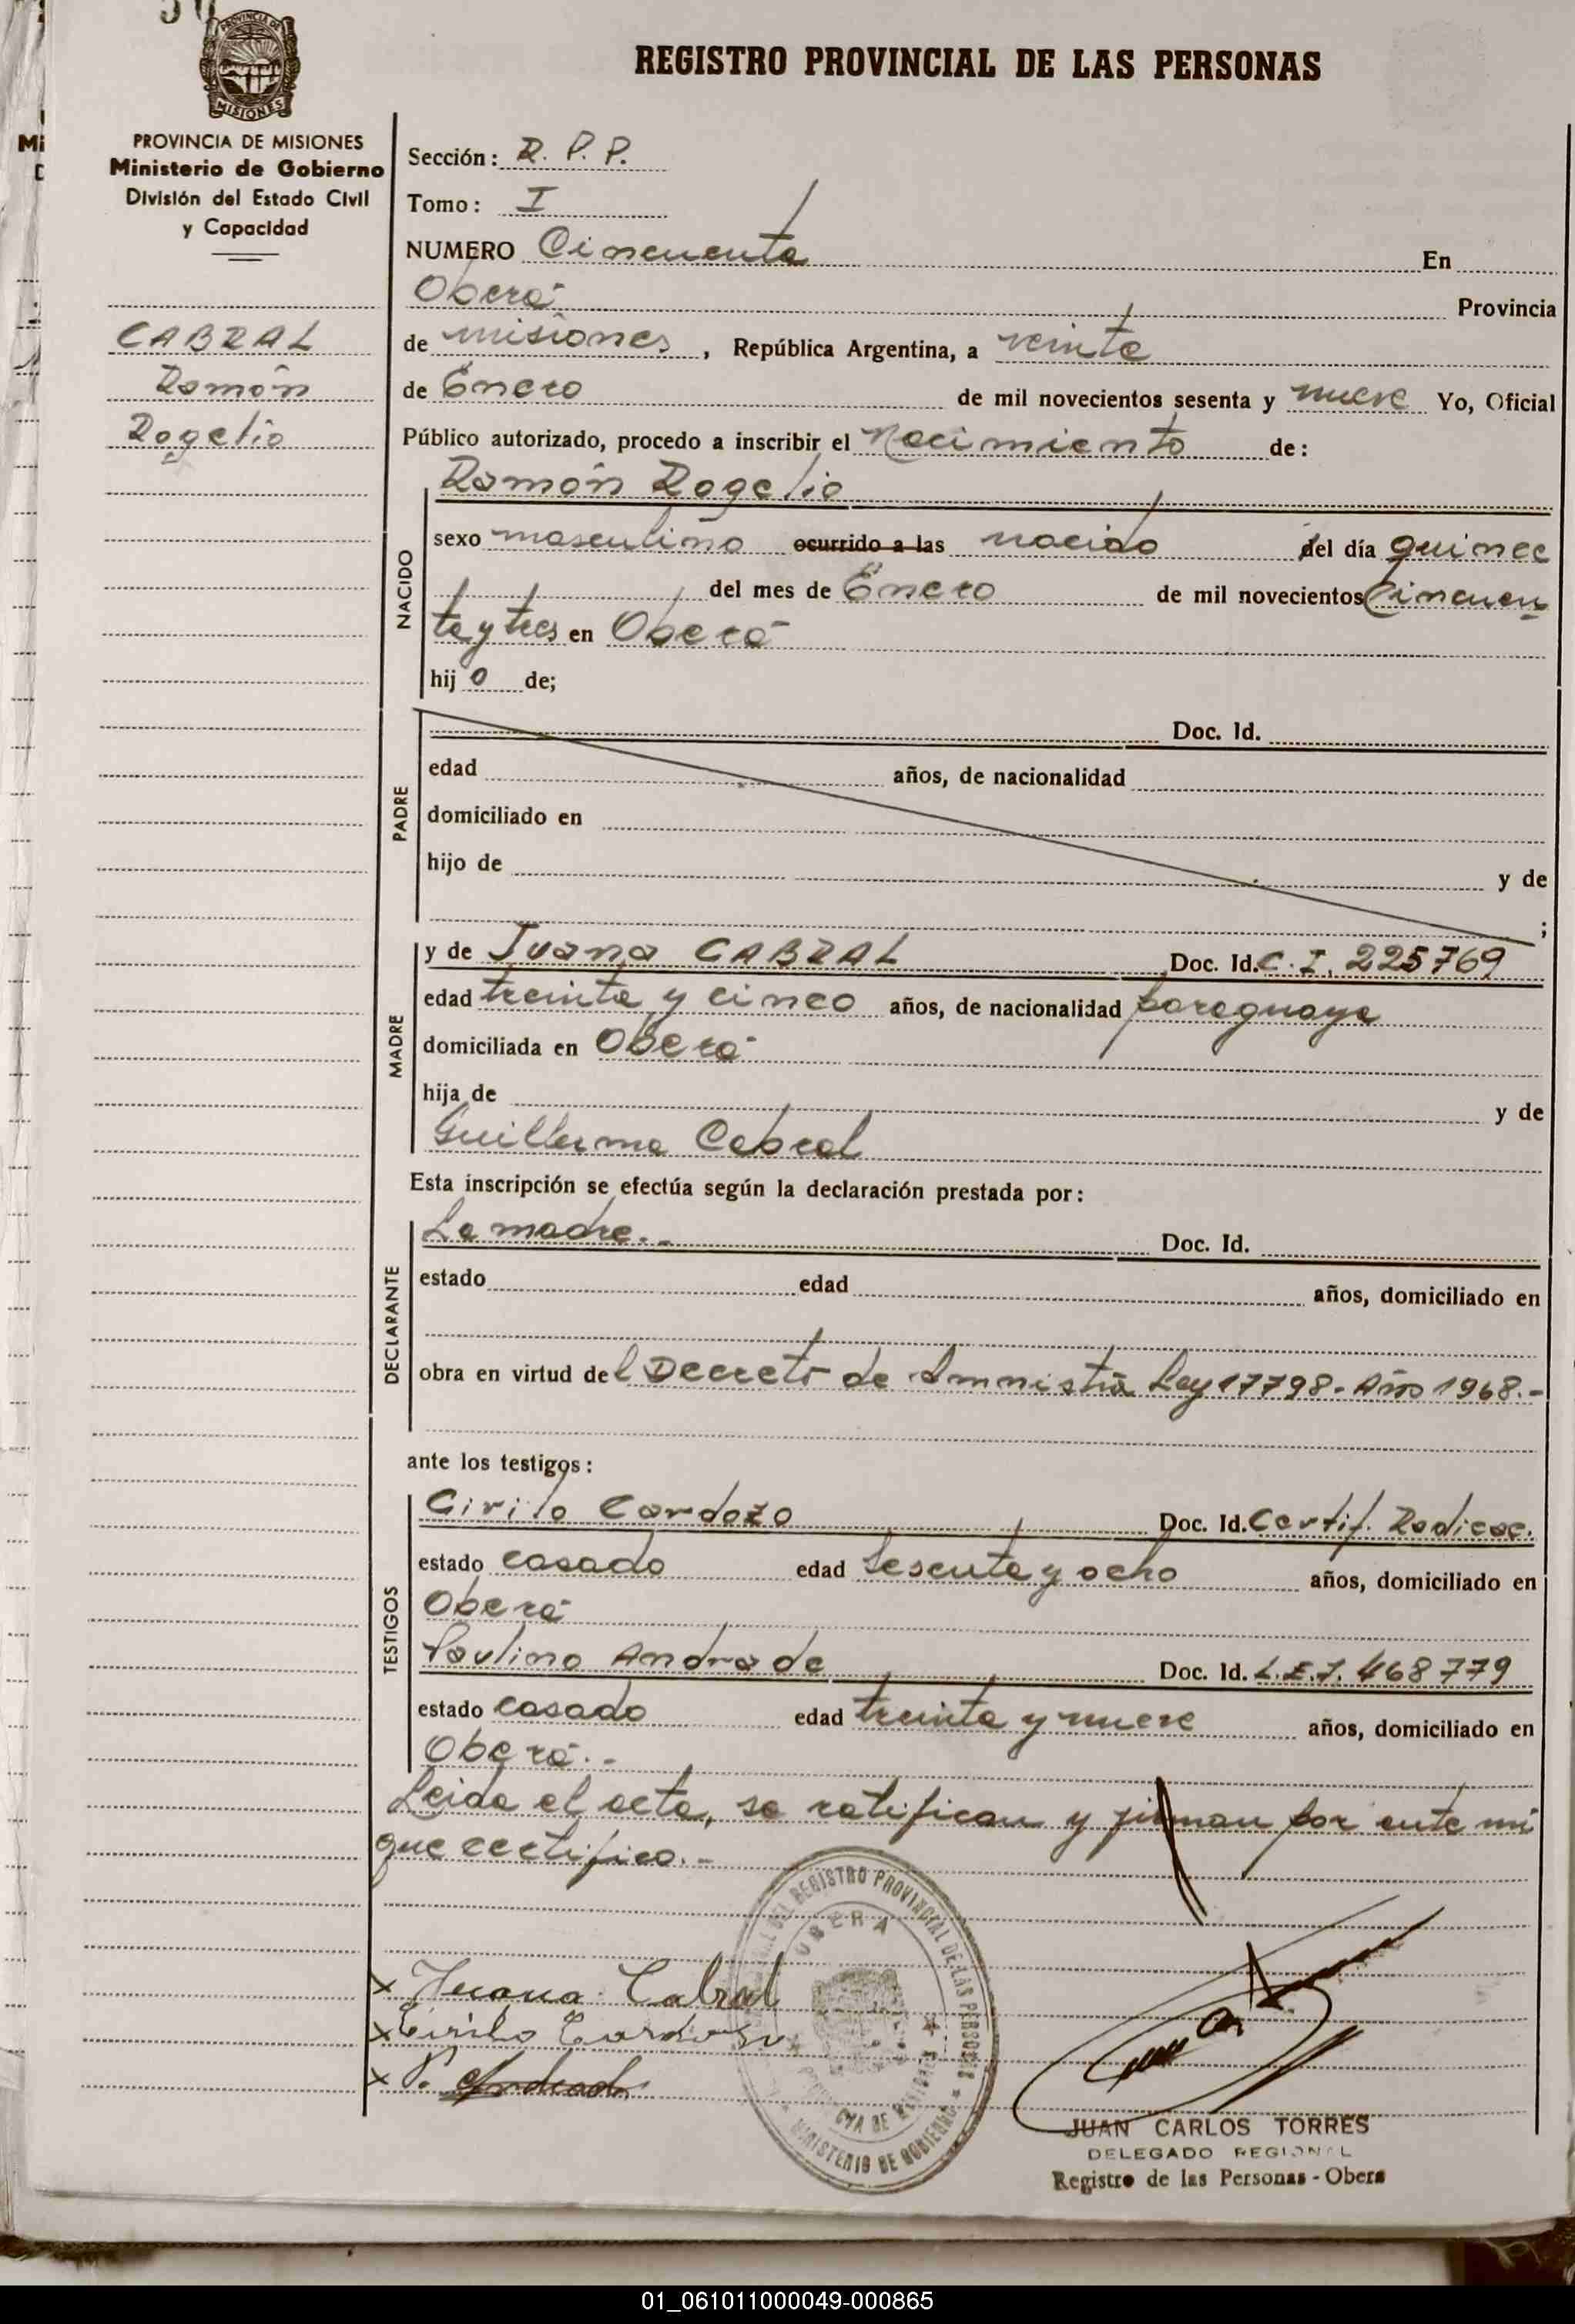 REGISTRO PROVINCIAL DE LAS PERSONAS
PROVINCIA DE MISIONES
Ministerio de Gobierno
División del Estado Civil
y Capacidad
CABRAL
Ramón
Rogelio
Sección: R. P. P.
Tomo: I
NUMERO Cincuenta En
Oberá Provincia
de misiones, República Argentina, a veinte
de Enero de mil novecientos sesenta y nueve Yo, Oficial
Público autorizado, procedo a inscribir el Nacimiento de:
NACIDO
Ramón Rogelio
sexo masculino ocurrido a las nacido del día quince
del mes de Enero de mil novecientos Cincuen
ta y tres en Oberá
hijo de;
PADRE
Doc. Id.
edad años, de nacionalidad
domiciliado en
hijo de y de
;
MADRE
y de Juana CABRAL Doc. Id. C. I. 225769
edad treinta y cinco años, de nacionalidad paraguaya
domiciliada en Oberá
hija de y de
Guillerma Cabral
Esta inscripción se efectúa según la declaración prestada por:
DECLARANTE
La madre.- Doc. Id.
estado edad años, domiciliado en
obra en virtud del Decreto de Amnistía Ley 17798- Año 1968.-
ante los testigos:
TESTIGOS
Cirilo Cardozo Doc. Id. Certif. Radicac.
estado casado edad sesenta y ocho años, domiciliado en
Oberá
Paulino Andrade Doc. Id. L.E.7.468779
estado casado edad treinta y nueve años, domiciliado en
Oberá.-
Leida el acta, se ratifican y firman por ante mi
que certifico.-
DEL REGISTRO PROVINCIAL DE LAS PERSONAS
OBERA
PROVINCIA DE MISIONES
MINISTERIO DE GOBIERNO
x Juana Cabral
x Cirilo Cardozo
x P. Andrade
JUAN CARLOS TORRES
DELEGADO REGIONAL
Registro de las Personas - Obera
01_061011000049-000865